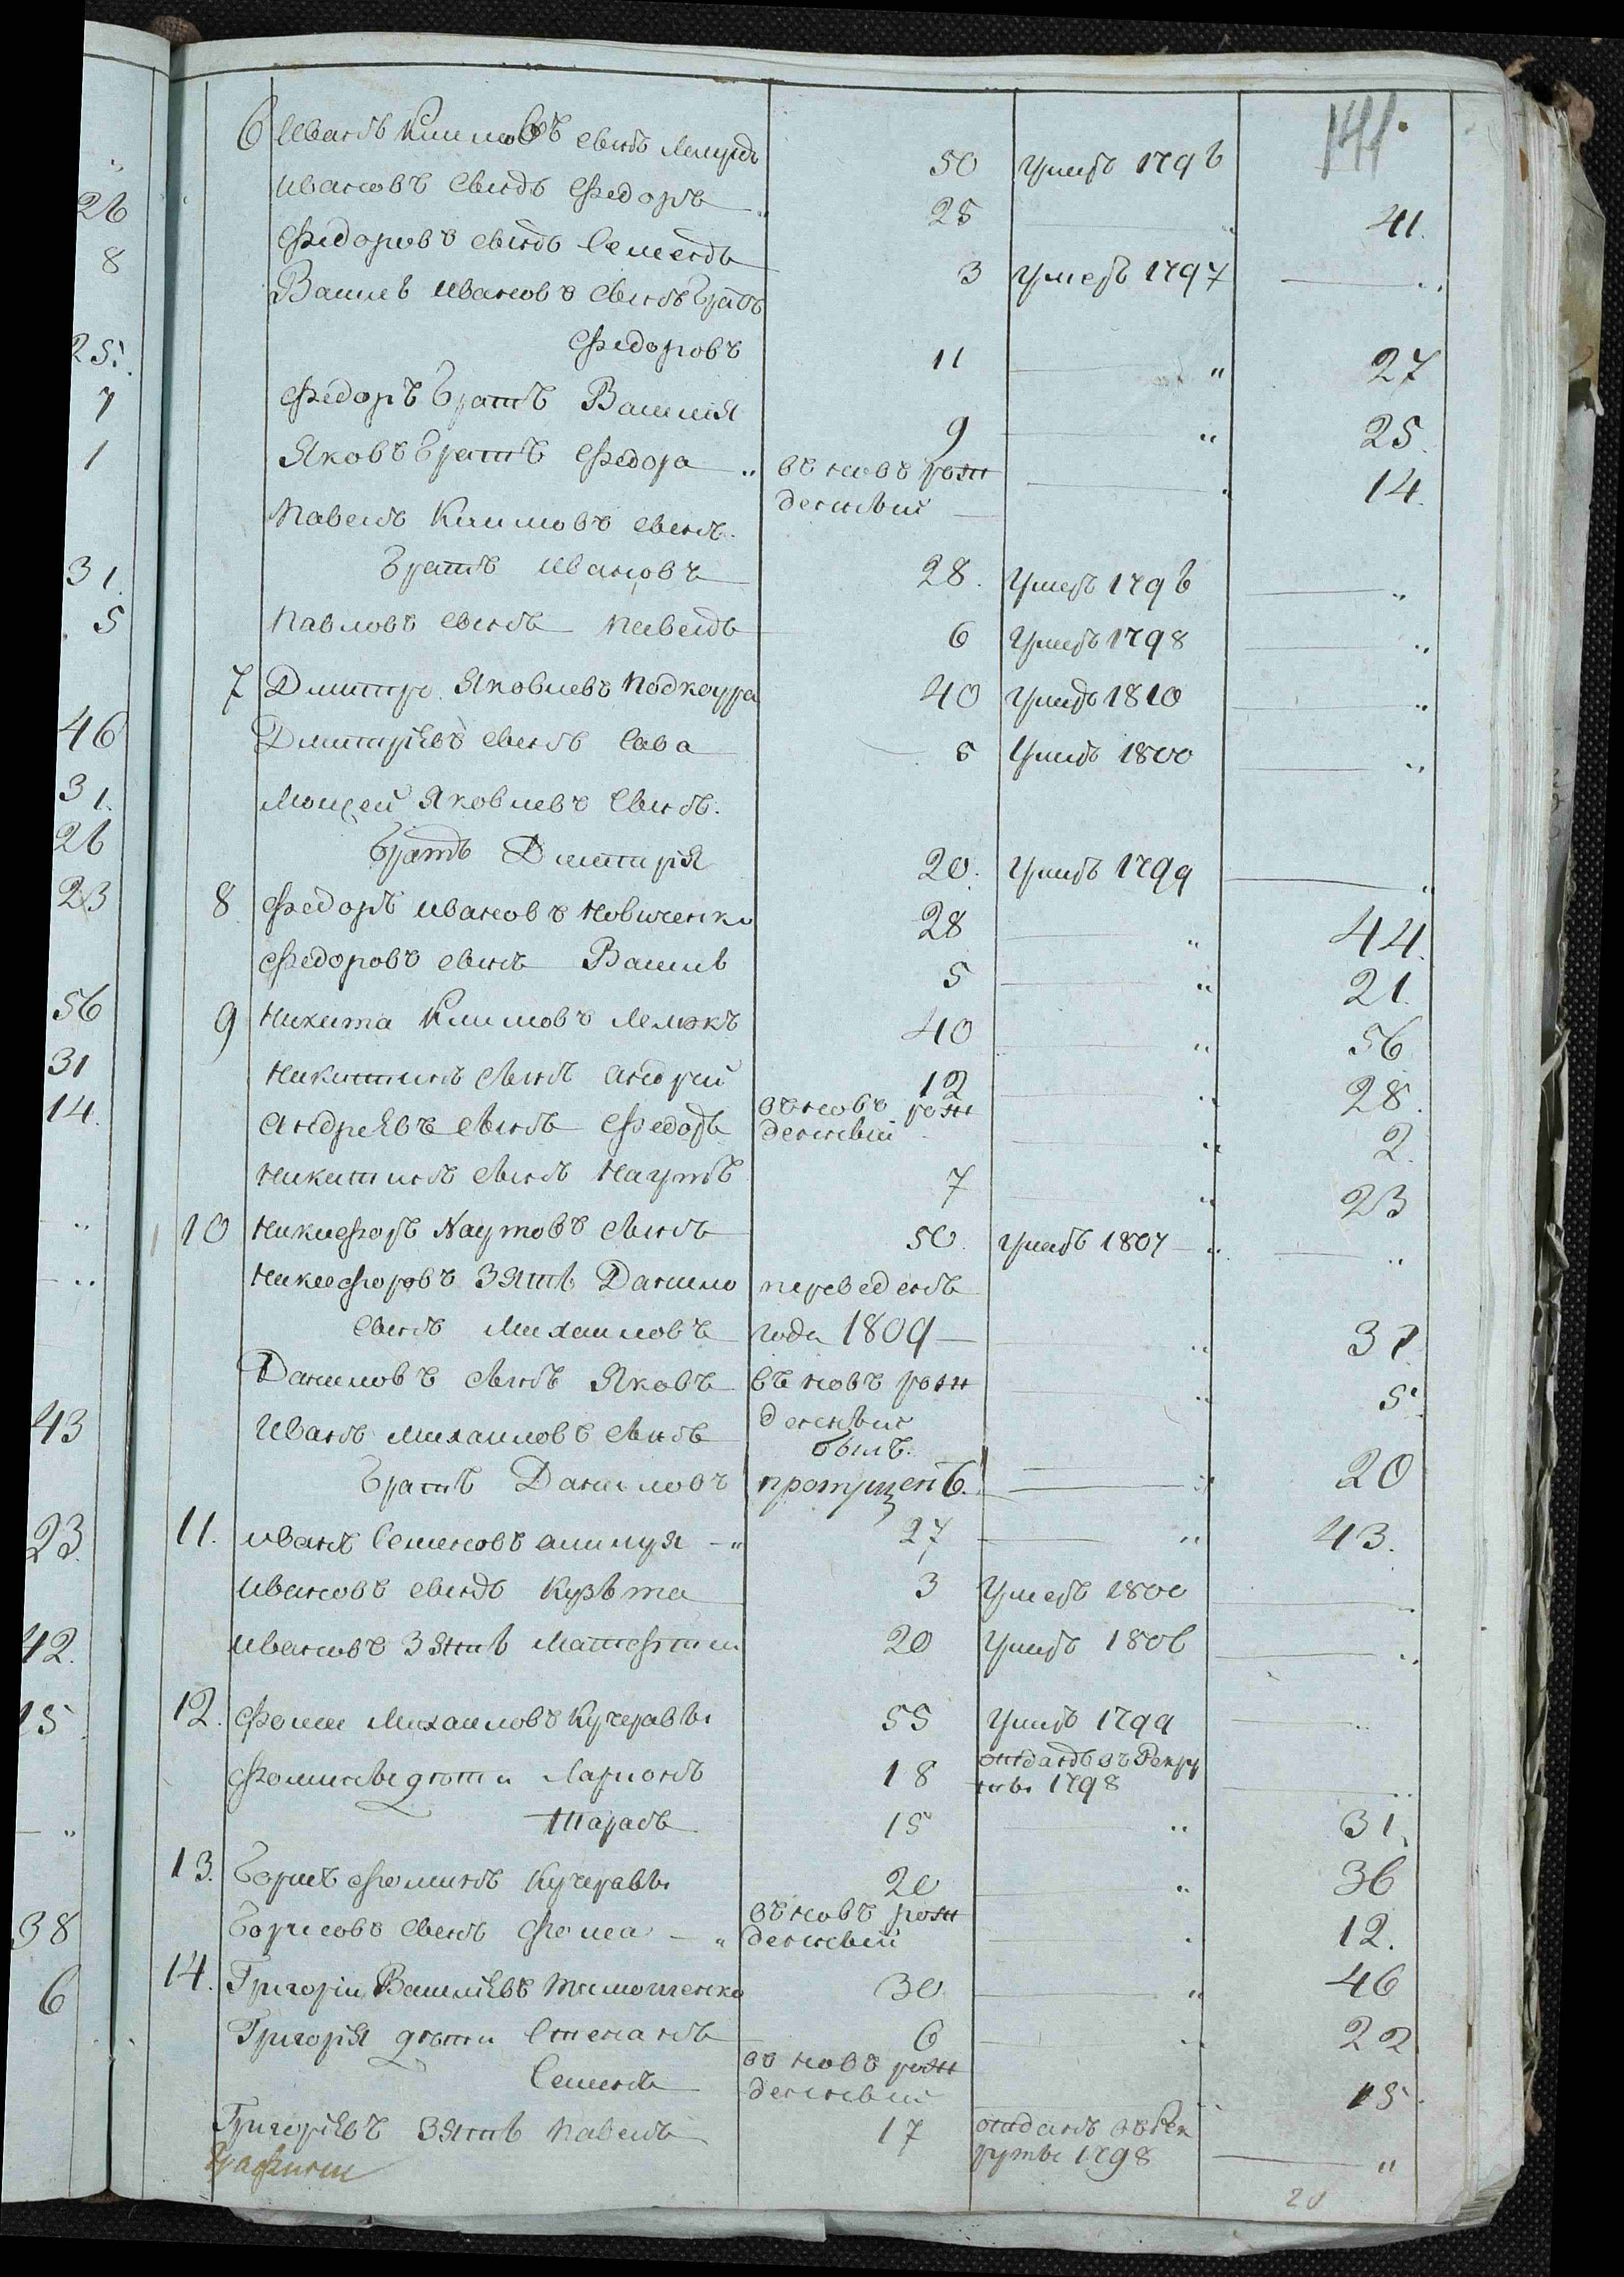 141.
6 Иванъ Климовъ сынъ 50 умеръ 1796
Ивановъ сынъ Федоръ 25 41.
Федоровъ сынъ Семенъ 3 умеръ 1797
Василь Ивановъ сынъ братъ
Федоровъ 11 " 27
Федоръ братъ Василия 9 " 25.
Яковъ братъ Федора въ новъ рож
денный 14.
Павелъ Климовъ сынъ.
братъ Ивановъ 28. умеръ 1796 "
Павловъ сынъ Павелъ 6 умеръ 1798 "
7 Дмитро Яковлевъ 40 умеръ 1810 "
Дмитріевъ сынъ Сава 5 умеръ 1800 "
Моисей Яковлевъ сынъ.
братъ Дмитрія 20. умеръ 1799 "
8 Федоръ Ивановъ Новиченко 28 " 44.
Федоровъ сынъ Василь 5 " 21.
9 Никита Климовъ 40 " 56
Никитинъ сынъ Андрей 12 " 28.
Андреевъ сынъ Федоръ въ новъ рож
денный " 2.
Никитинъ сынъ Наумъ 7 " 23
10 Никифоръ Наумовъ сынъ 50. умеръ 1807 "
Никифоровъ зять Данило переведенъ
сынъ Михаиловъ года 1809 " 31.
Даниловъ сынъ Яковъ въ новъ рож
денный " 5.
Иванъ Михаиловъ сынъ былъ.
братъ Даниловъ пропущенъ. " 20
11. Иванъ Семеновъ 27 " 43.
Ивановъ сынъ Кузьма 3 умеръ 1800
Ивановъ зять 20 умеръ 1806 "
12. Фома Михаиловъ Кучеравы 55 умеръ 1799 "
Фомины дѣти Ларионъ 18 отданъ въ рекру
ты 1798
Тарасъ 15 " 31.
13. Борисъ Фоминъ Кучеравы 20 " 36
Борисовъ сынъ Фома " въ новъ рож
денный 12.
14. Григоріи Васильевъ Тимошенко 30 " 46
Григорія дѣти Степанъ 6 " 22
Семенъ въ новъ рож
денный 15.
Григорьевъ зять Павелъ 17 отданъ въ рек
руты 1798 "
20
26
8
25.
7
1
31.
5
46
31.
26
23
56
31
14.
43
23.
42.
15
38
6